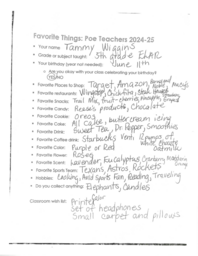 Favorite Things: Poe Teachers 2024-25
Your name Tammy Wiggins
Grade or subject taught 5th grade ELAR
Your birthday (year not needed) June 11th
Are you okay with your class celebrating your birthday? YES/NO
Favorite Places to Shop: Target, Amazon,
Favorite restaurants: Wingstop,
Favorite Snacks: Trail Mix, fruit-
Favorite Candy: Reese's products, Chocolate
Favorite Cookie: Oreos
Favorite Cake: All cakes, buttercream icing
Favorite Drink: Sweet Tea, Dr. Pepper, Smoothies
Favorite Coffee drink: Starbucks Venti
Favorite Color: Purple or Red
Favorite Flower: Roses
Favorite Scent: Lavender, Eucalyptus
Favorite Sports Team: Texans, Astros, Rockets
Hobbies: Cooking, Avid Sports Fan, Reading, Traveling
Do you collect anything? Elephants, Candles
Classroom Wish list: Printer paper
Set of headphones
Small carpet and pillows